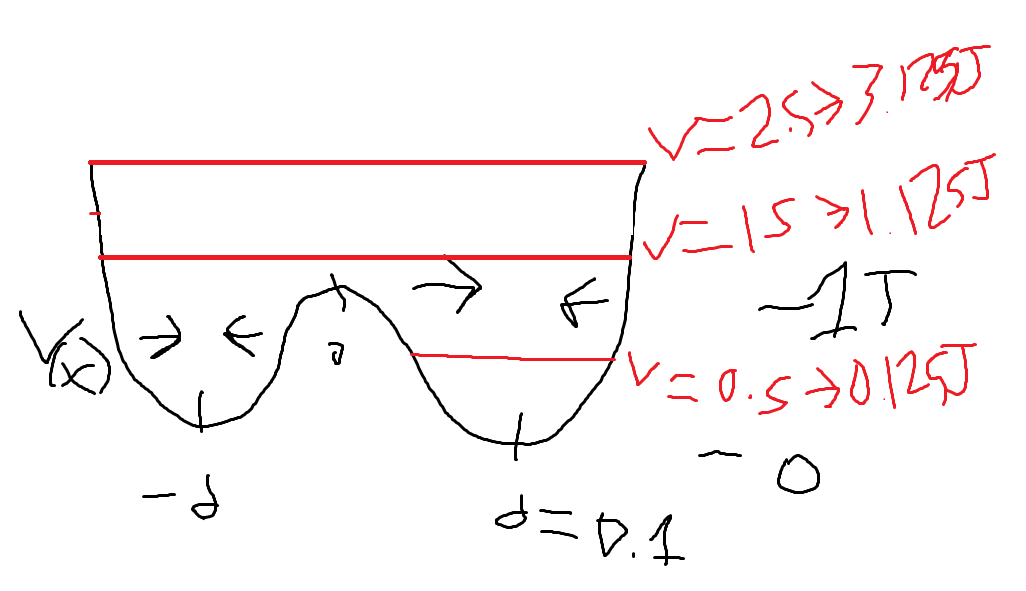 V=2.5→3.125J
V=1.5→1.125J
~1J
V(x)
0
V=0.5→0.125J
~0
-d
d=0.1